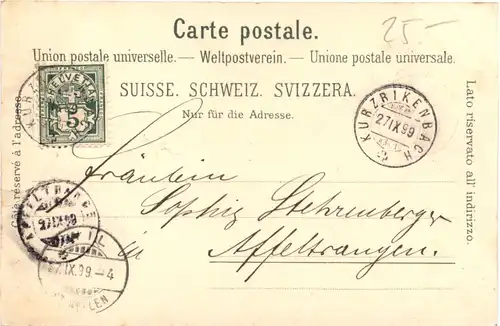 25.-
Carte postale.
Union postale universelle. — Weltpostverein. — Unione postale universale.
SUISSE. SCHWEIZ. SVIZZERA.
Nur für die Adresse.
Côté réservé à l'adresse.
Lato riservato all' indirizzo.
HELVETIA
5
KURZRIKENBACH
27 IX 99
KURZRI
Fräulein
Sophie Stehrenberger
in
Affeltrangen.
AFFELTRANGEN
27 IX 99
WIL
27. IX. 99. — 4